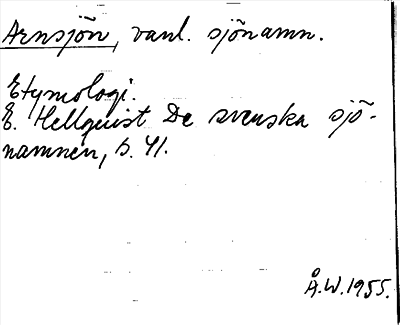 Arnsjön, vanl. sjönamn.
Etymologi.
E. Hellquist De svenska sjö-
namnen, s. 41.
Å.W. 1955.